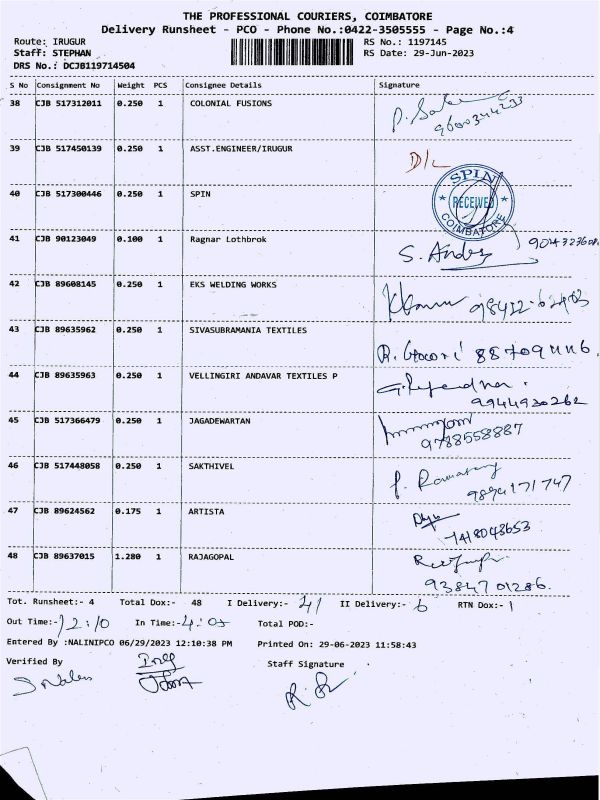 THE PROFESSIONAL COURIERS, COIMBATORE
Delivery Runsheet - PCO - Phone No.:0422-3505555 - Page No.:4
Route: IRUGUR RS No.: 1197145
Staff: STEPHAN RS Date: 29-Jun-2023
DRS No.: DCJB119714504
S No Consignment No Weight PCS Consignee Details Signature
38 CJB 517312011 0.250 1 COLONIAL FUSIONS
9600344233
39 CJB 517450139 0.250 1 ASST.ENGINEER/IRUGUR D/L
40 CJB 517300446 0.250 1 SPIN SPIN RECEIVED COIMBATORE
41 CJB 90123049 0.100 1 Ragnar Lothbrok
42 CJB 89608145 0.250 1 EKS WELDING WORKS
43 CJB 89635962 0.250 1 SIVASUBRAMANIA TEXTILES
44 CJB 89635963 0.250 1 VELLINGIRI ANDAVAR TEXTILES P
9944930262
45 CJB 517366479 0.250 1 JAGADEWARTAN
9788558887
46 CJB 517448058 0.250 1 SAKTHIVEL
9894171747
47 CJB 89624562 0.175 1 ARTISTA
7418048653
48 CJB 89637015 1.280 1 RAJAGOPAL
9384701286.
Tot. Runsheet:- 4 Total Dox:- 48 I Delivery:- 41 II Delivery:- 6 RTN Dox:- 1
Out Time:- 12:10 In Time:- 4:05 Total POD:-
Entered By :NALINIPCO 06/29/2023 12:10:38 PM Printed On: 29-06-2023 11:58:43
Verified By Staff Signature